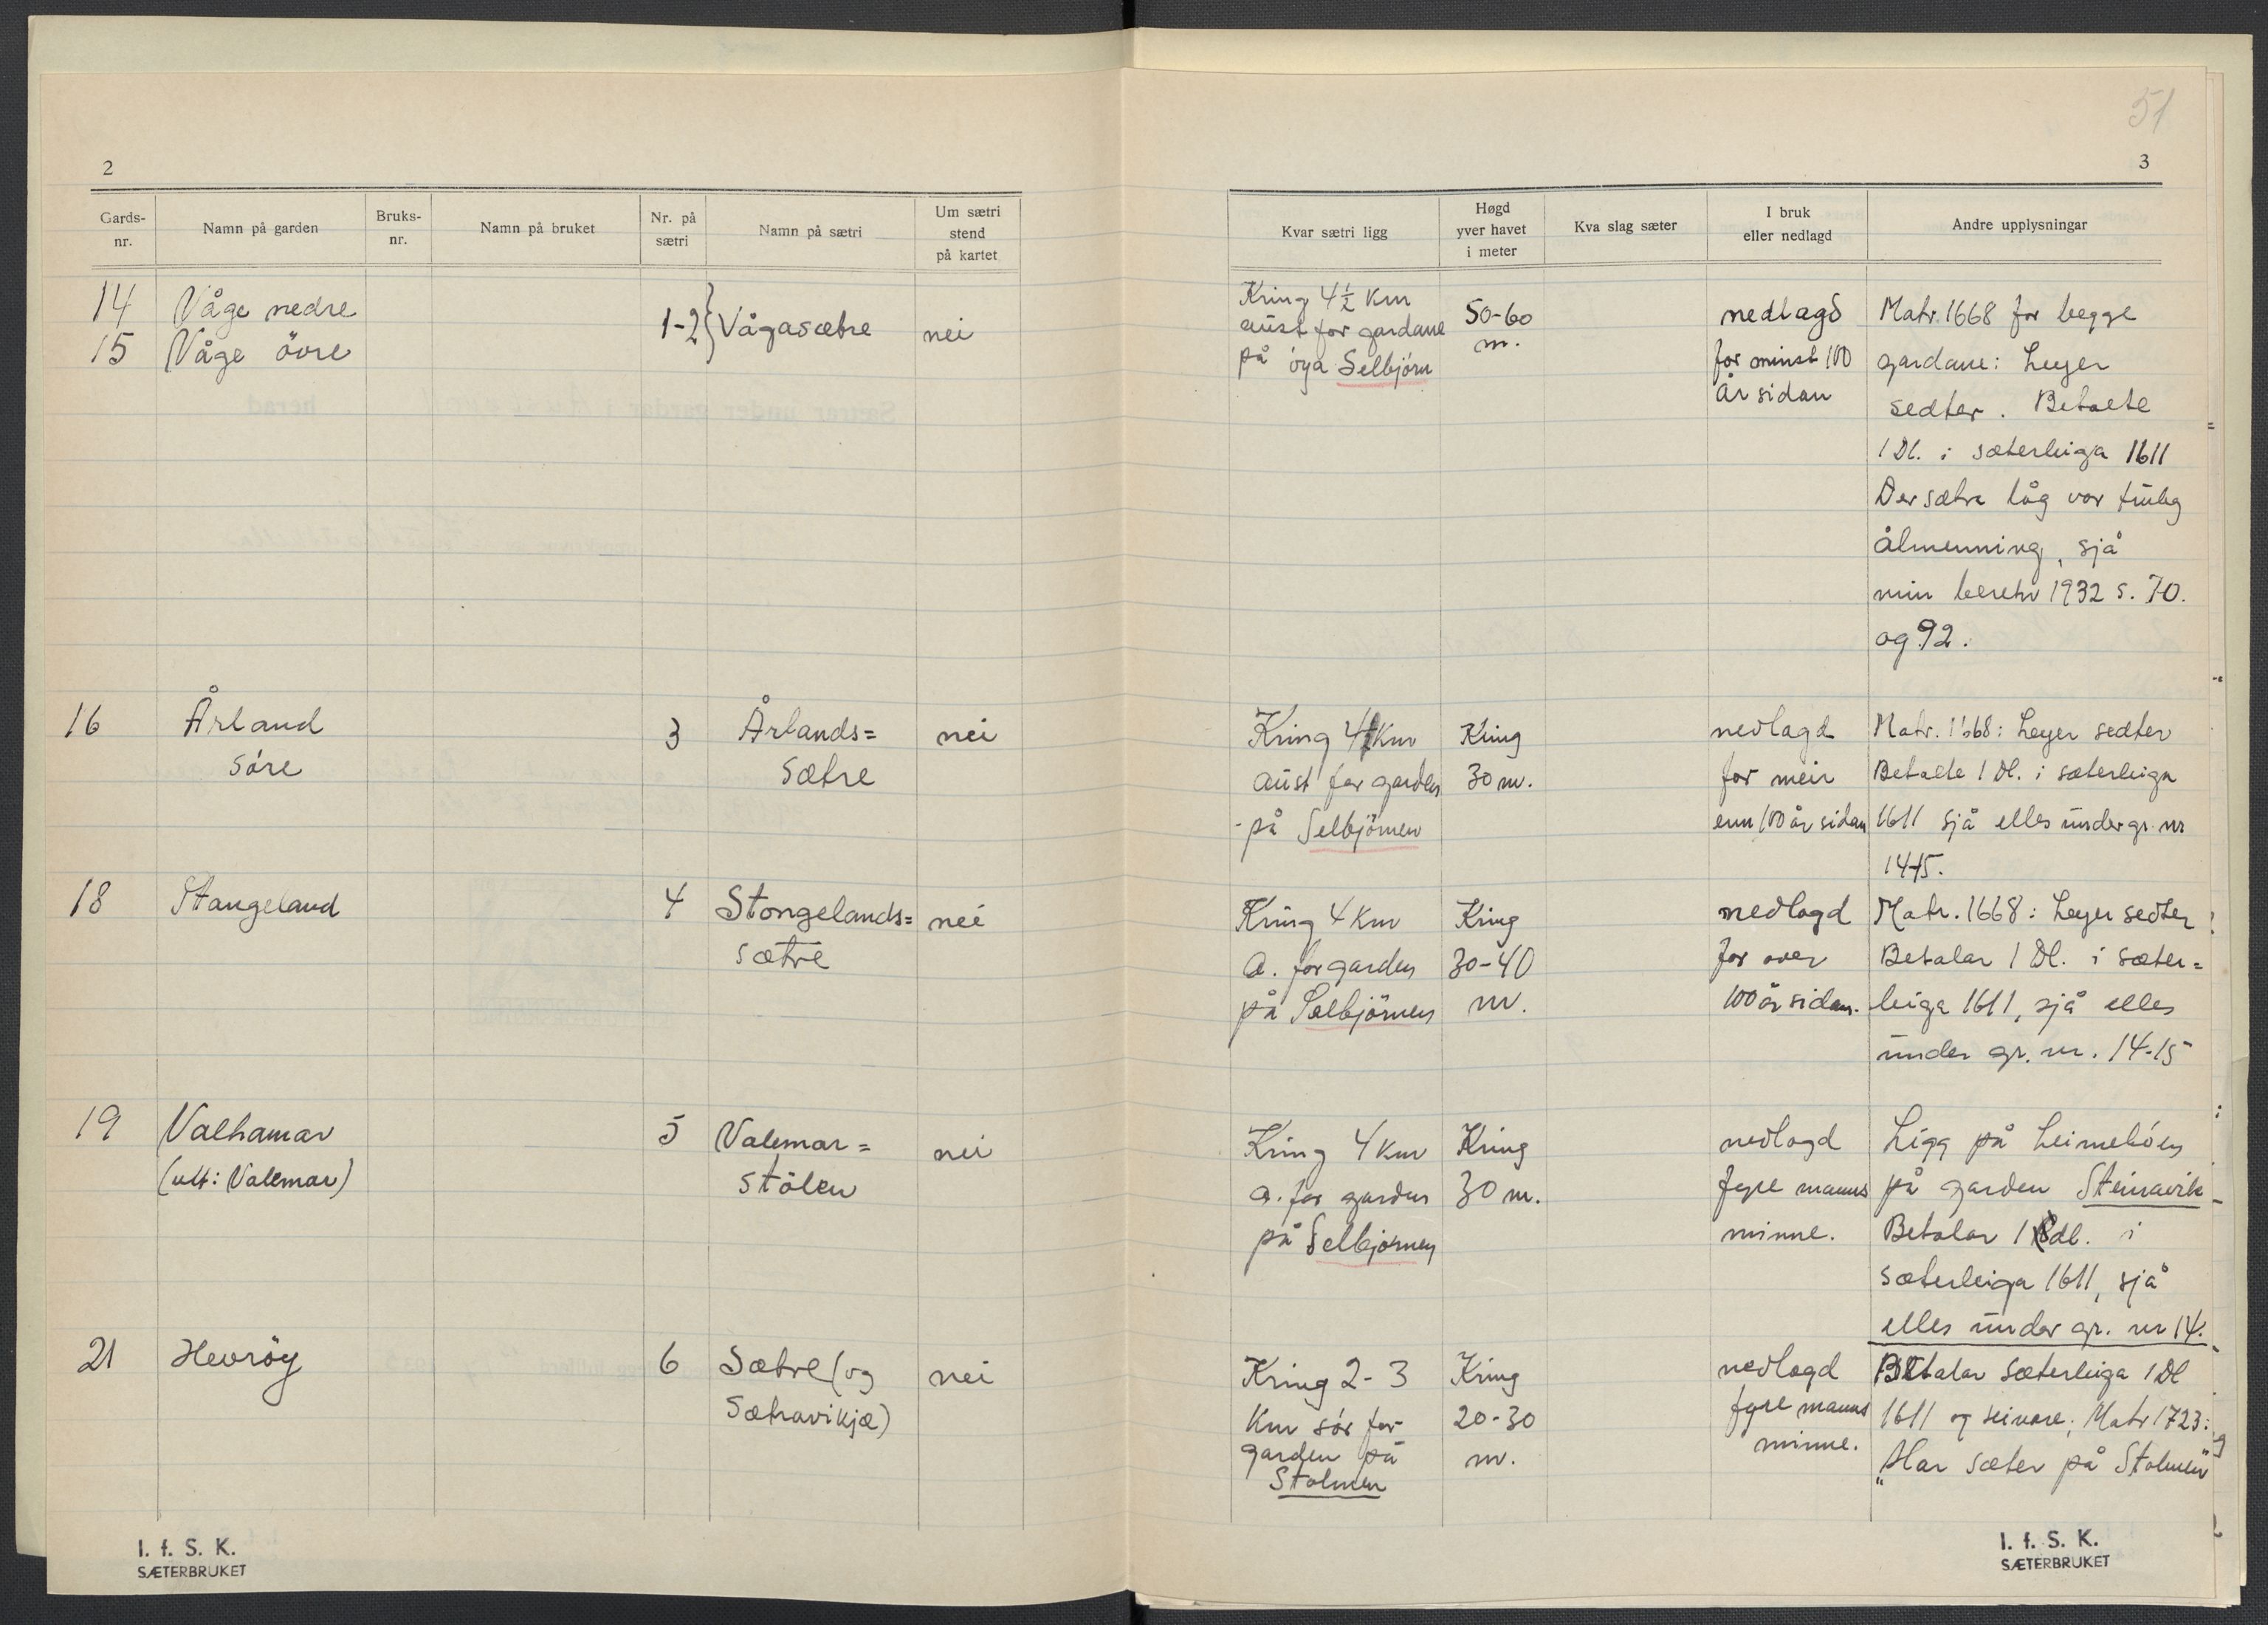 51
2
3
Gards-nr. Namn på garden Bruks-nr. Namn på bruket Nr. på sætri Namn på sætri Um sætri stend på kartet
Kvar sætri ligg Høgd yver havet i meter Kva slag sæter I bruk eller nedlagd Andre upplysningar
14 Våge nedre
15 Våge övre
1-2 } Vågasætre nei
Kring 4½ Km
aust for gardane
på öya Selbjörn
50-60
m.
nedlagd
for minst 100
år sidan
Matr. 1668 for begge
gardane: Leyer
sedter. Betalte
1 Dl. i sæterleiga 1611
Der sætra låg var truleg
ålmenning, sjå
min beretn 1932 s. 70.
og 92.
16 Årland
söre
3 Årlands=
sætre
nei
Kring 4 Km
aust for garden
på Selbjörnen
Kring
30 m.
nedlagd
for meir
enn 100 år sidan
Matr. 1668: Leyer sedter
Betalte 1 Dl. i sæterleiga
1611 sjå elles under gr. nr
14-15.
18 Stangeland 4 Stongelands=
sætre
nei
Kring 4 Km
A. for garden
på Selbjörnen
Kring
30-40
m.
nedlagd
for over
100 år sidan.
Matr. 1668: Leyer sedter
Betalar 1 Dl. i sæter=
leiga 1611, sjå elles
under gr. nr. 14-15
19 Valhamar
(utt: Valemar)
5 Valemar=
stölen
nei
Kring 4 Km
a. for garden
på Selbjörnen
Kring
30 m.
nedlagd
fyre manns
minne.
Ligg på heimebóen
på garden Steinavik
Betalar 1 dl. i
sæterleiga 1611, sjå
elles under gr. nr 14.
21 Hevröy 6 Sætre (og
Sætravikjæ)
nei
Kring 2-3
Km sör for
garden på
Stolmen
Kring
20-30
m.
nedlagd
fyre manns
minne.
Betalar sæterleiga 1 Dl
1611 og seinare; Matr 1723:
„Har sæter på Stolmen"
I. f. S. K.
SÆTERBRUKET
I. f. S. K.
SÆTERBRUKET